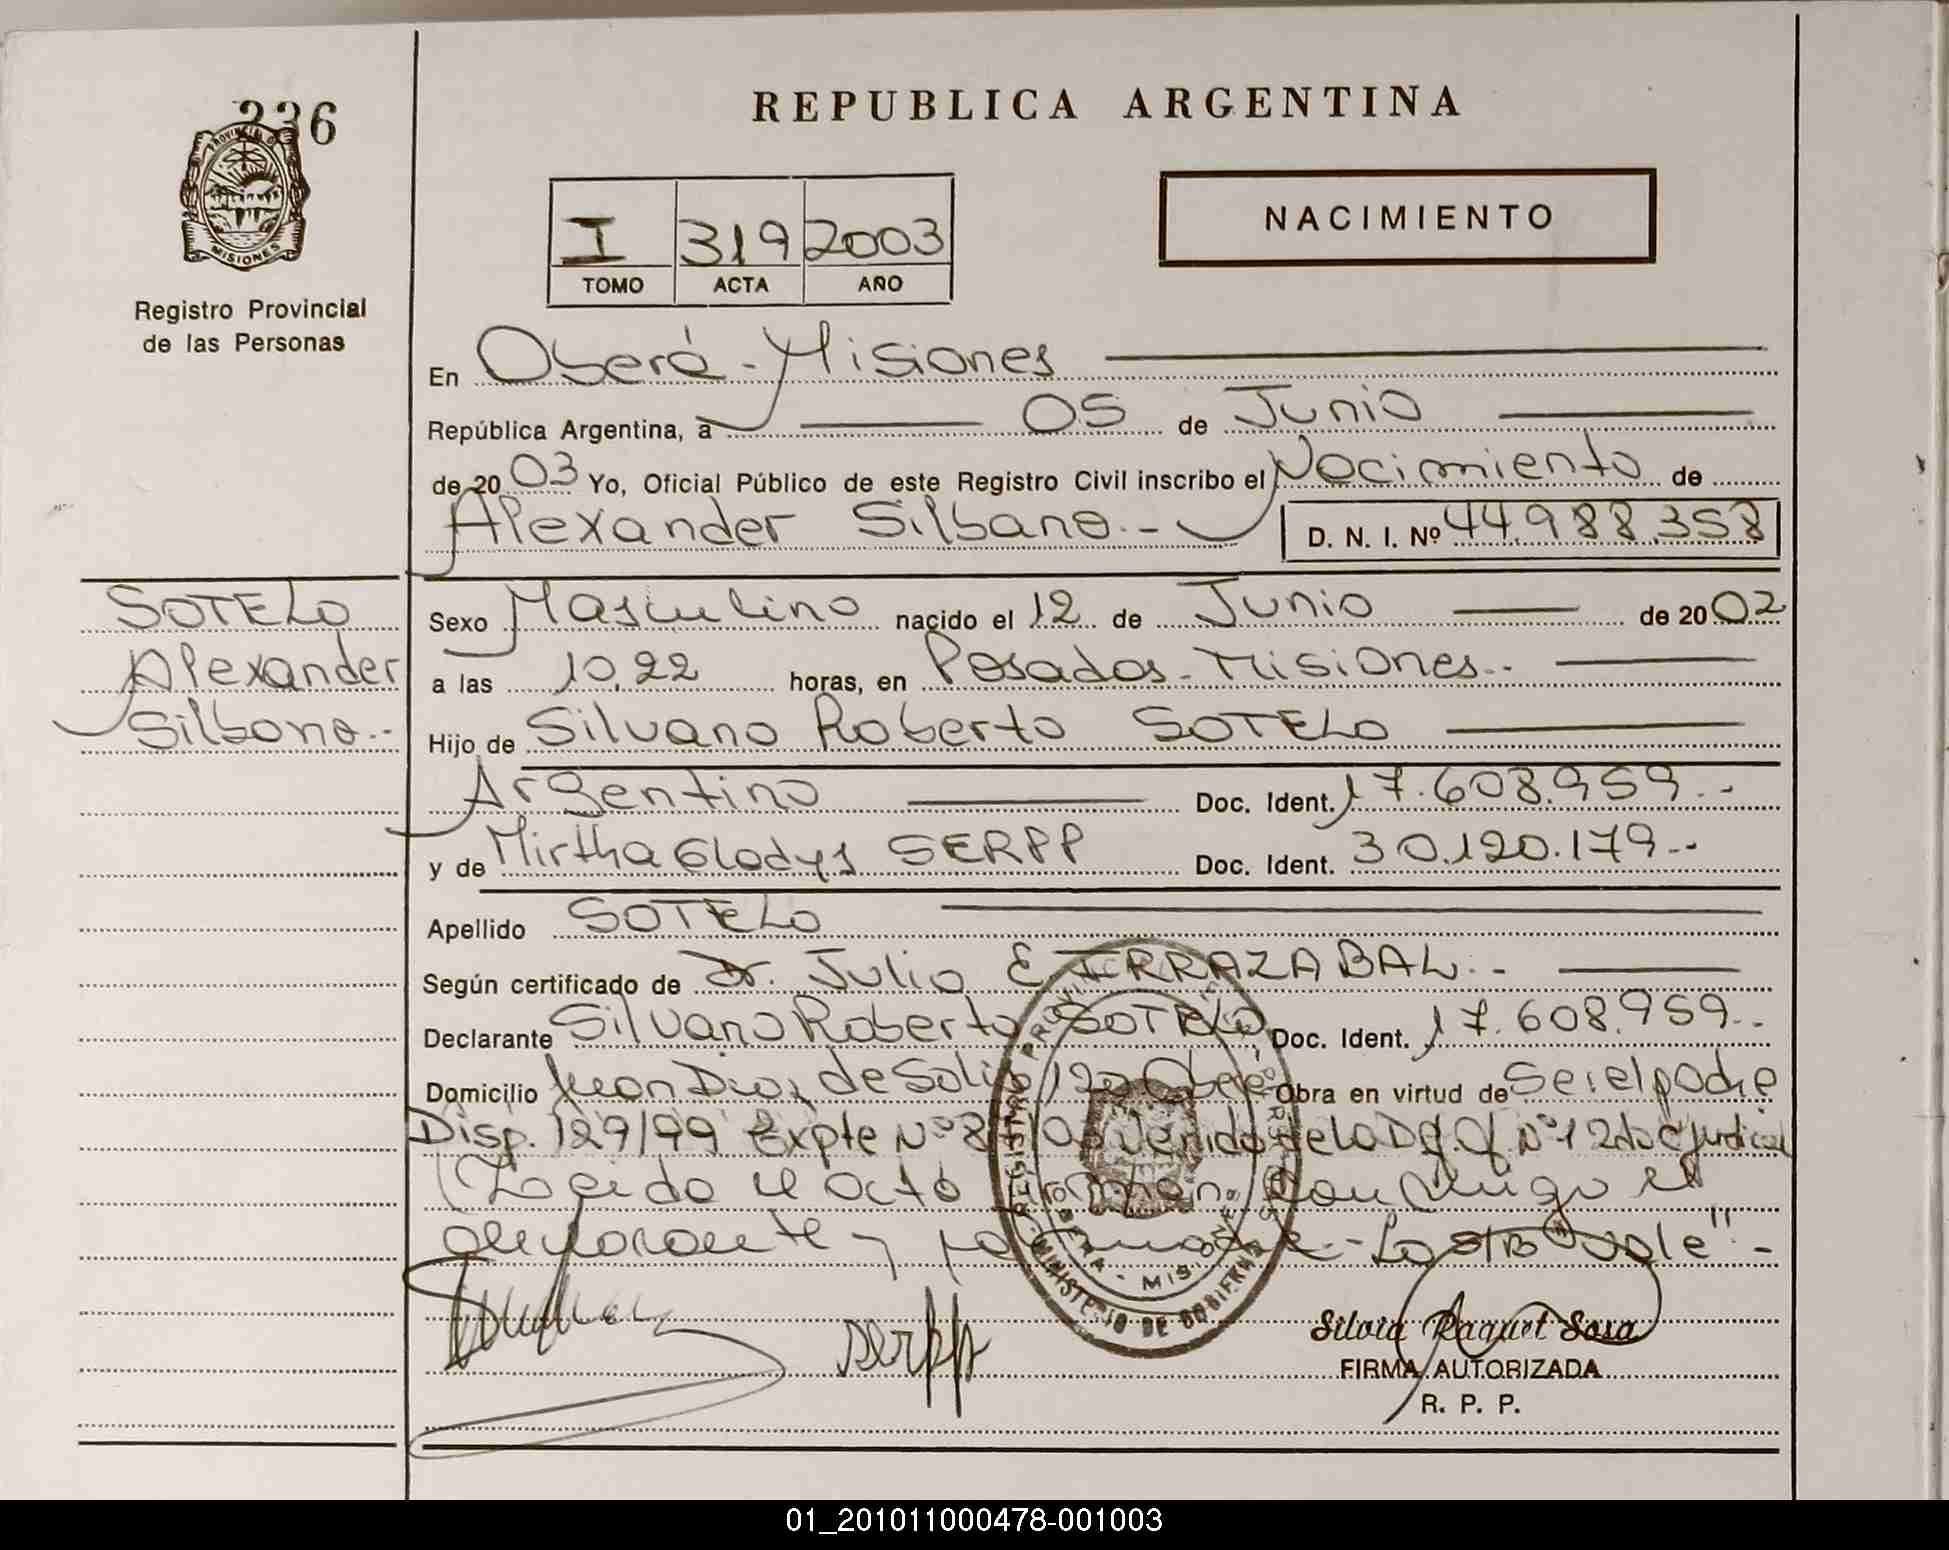 REPUBLICA ARGENTINA
336
PROVINCIA DE
MISIONES
Registro Provincial
de las Personas
I 319 2003
TOMO ACTA AÑO
NACIMIENTO
En Oberá - Misiones
República Argentina, a 05 de Junio
de 2003 Yo, Oficial Público de este Registro Civil inscribo el Nacimiento de
Alexander Silbano.-
D. N. I. Nº 44.988.358
SOTELO
Alexander
Silbano.-
Sexo Masculino nacido el 12 de Junio de 2002
a las 10,22 horas, en Posadas - Misiones.-
Hijo de Silvano Roberto SOTELO
Argentino Doc. Ident. 17.608.959.-
y de Mirtha Gladys SERPP Doc. Ident. 30.120.179.-
Apellido SOTELO
Según certificado de Dr. Julio E IRRAZABAL.-
Declarante Silvano Roberto SOTELO Doc. Ident. 17.608.959.-
Domicilio Juan Diaz de Solis 120 Oberá Obra en virtud de Ser el padre
Disp. 129/99 Expte Nº 1 2da C judicial
Leída el acta conmigo el
declarante y la madre.- vale" -
REGISTRO PROVINCIAL DE LAS PERSONAS
OBERA - MISIONES
MINISTERIO DE GOBIERNO
serpp
Silvia Raquel Sosa
FIRMA AUTORIZADA
R. P. P.
01_201011000478-001003